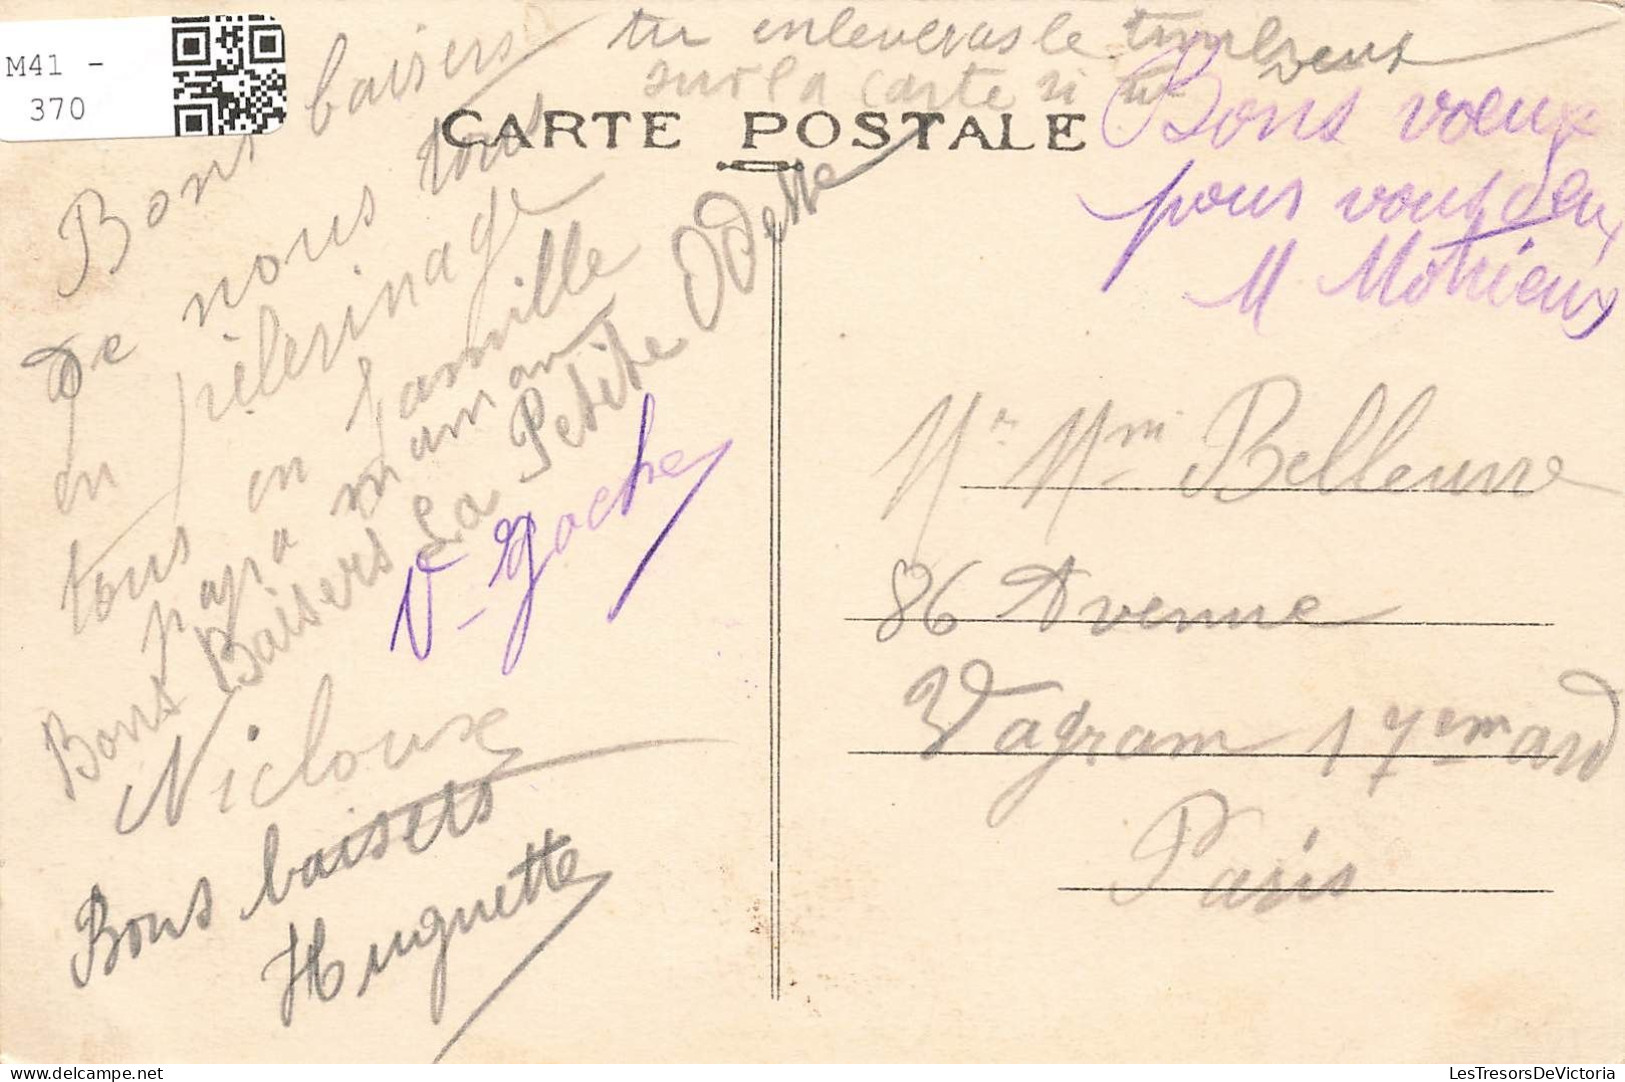 M41 -
370
tu enleveras le timbre
sur la carte si tu veux
CARTE POSTALE
Bons voeux
pour vous deux
M Motrieux
Bons baisers
de nous tous
en pèlerinage
tous en famille
papa maman
Bons Baisers La Petite Odette
V- Goche
Nicloux
Bons baisers
Huguette
Mr Mme Belleuvre
86 Avenue
Wagram 17em ard
Paris
LesTresorsDeVictoria
delcampe.net